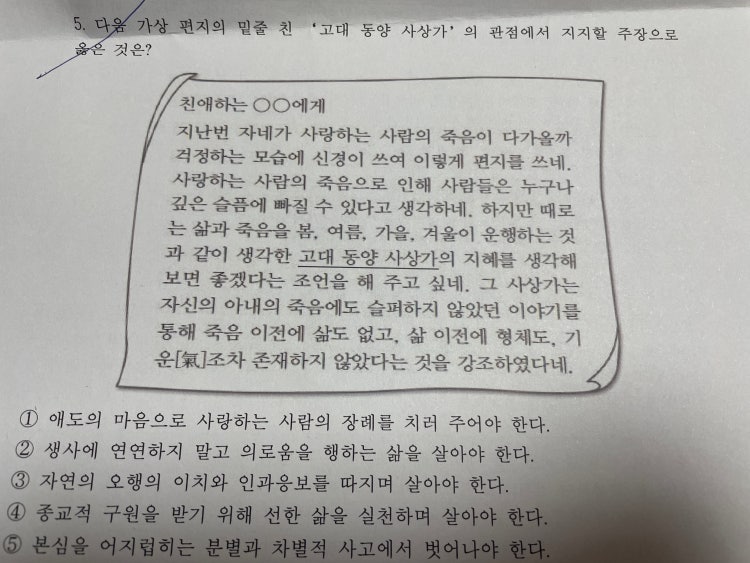 5. 다음 가상 편지의 밑줄 친 '고대 동양 사상가'의 관점에서 지지할 주장으로
옳은 것은?
친애하는 ○○에게
지난번 자네가 사랑하는 사람의 죽음이 다가올까
걱정하는 모습에 신경이 쓰여 이렇게 편지를 쓰네.
사랑하는 사람의 죽음으로 인해 사람들은 누구나
깊은 슬픔에 빠질 수 있다고 생각하네. 하지만 때로
는 삶과 죽음을 봄, 여름, 가을, 겨울이 운행하는 것
과 같이 생각한 고대 동양 사상가의 지혜를 생각해
보면 좋겠다는 조언을 해 주고 싶네. 그 사상가는
자신의 아내의 죽음에도 슬퍼하지 않았던 이야기를
통해 죽음 이전에 삶도 없고, 삶 이전에 형체도, 기
운[氣]조차 존재하지 않았다는 것을 강조하였다네.
① 애도의 마음으로 사랑하는 사람의 장례를 치러 주어야 한다.
② 생사에 연연하지 말고 의로움을 행하는 삶을 살아야 한다.
③ 자연의 오행의 이치와 인과응보를 따지며 살아야 한다.
④ 종교적 구원을 받기 위해 선한 삶을 실천하며 살아야 한다.
⑤ 본심을 어지럽히는 분별과 차별적 사고에서 벗어나야 한다.